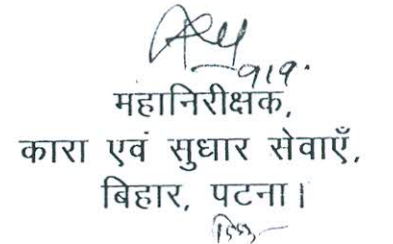 919.
महानिरीक्षक,
कारा एवं सुधार सेवाएँ,
बिहार, पटना।